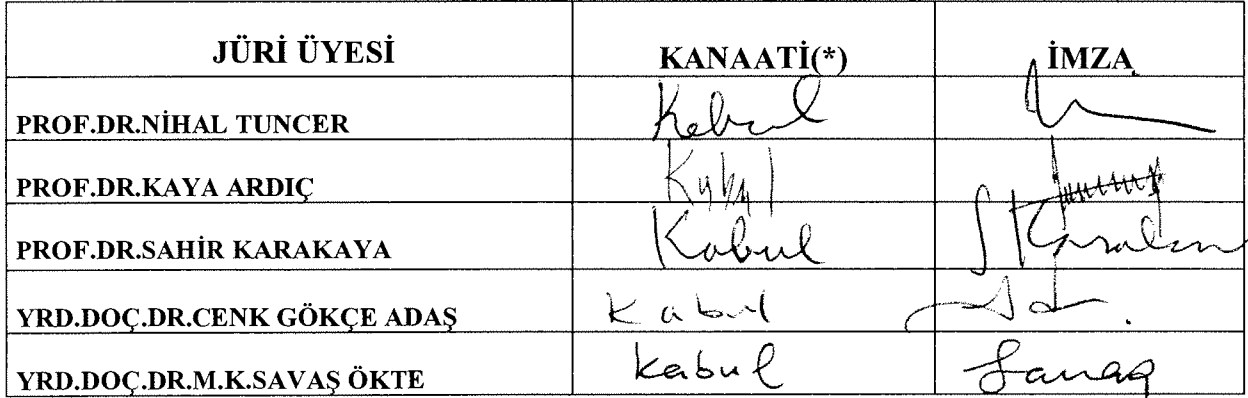 JÜRİ ÜYESİ KANAATİ(*) İMZA
PROF.DR.NİHAL TUNCER Kabul
PROF.DR.KAYA ARDIÇ Kabul
PROF.DR.SAHİR KARAKAYA Kabul
YRD.DOÇ.DR.CENK GÖKÇE ADAŞ Kabul
YRD.DOÇ.DR.M.K.SAVAŞ ÖKTE Kabul